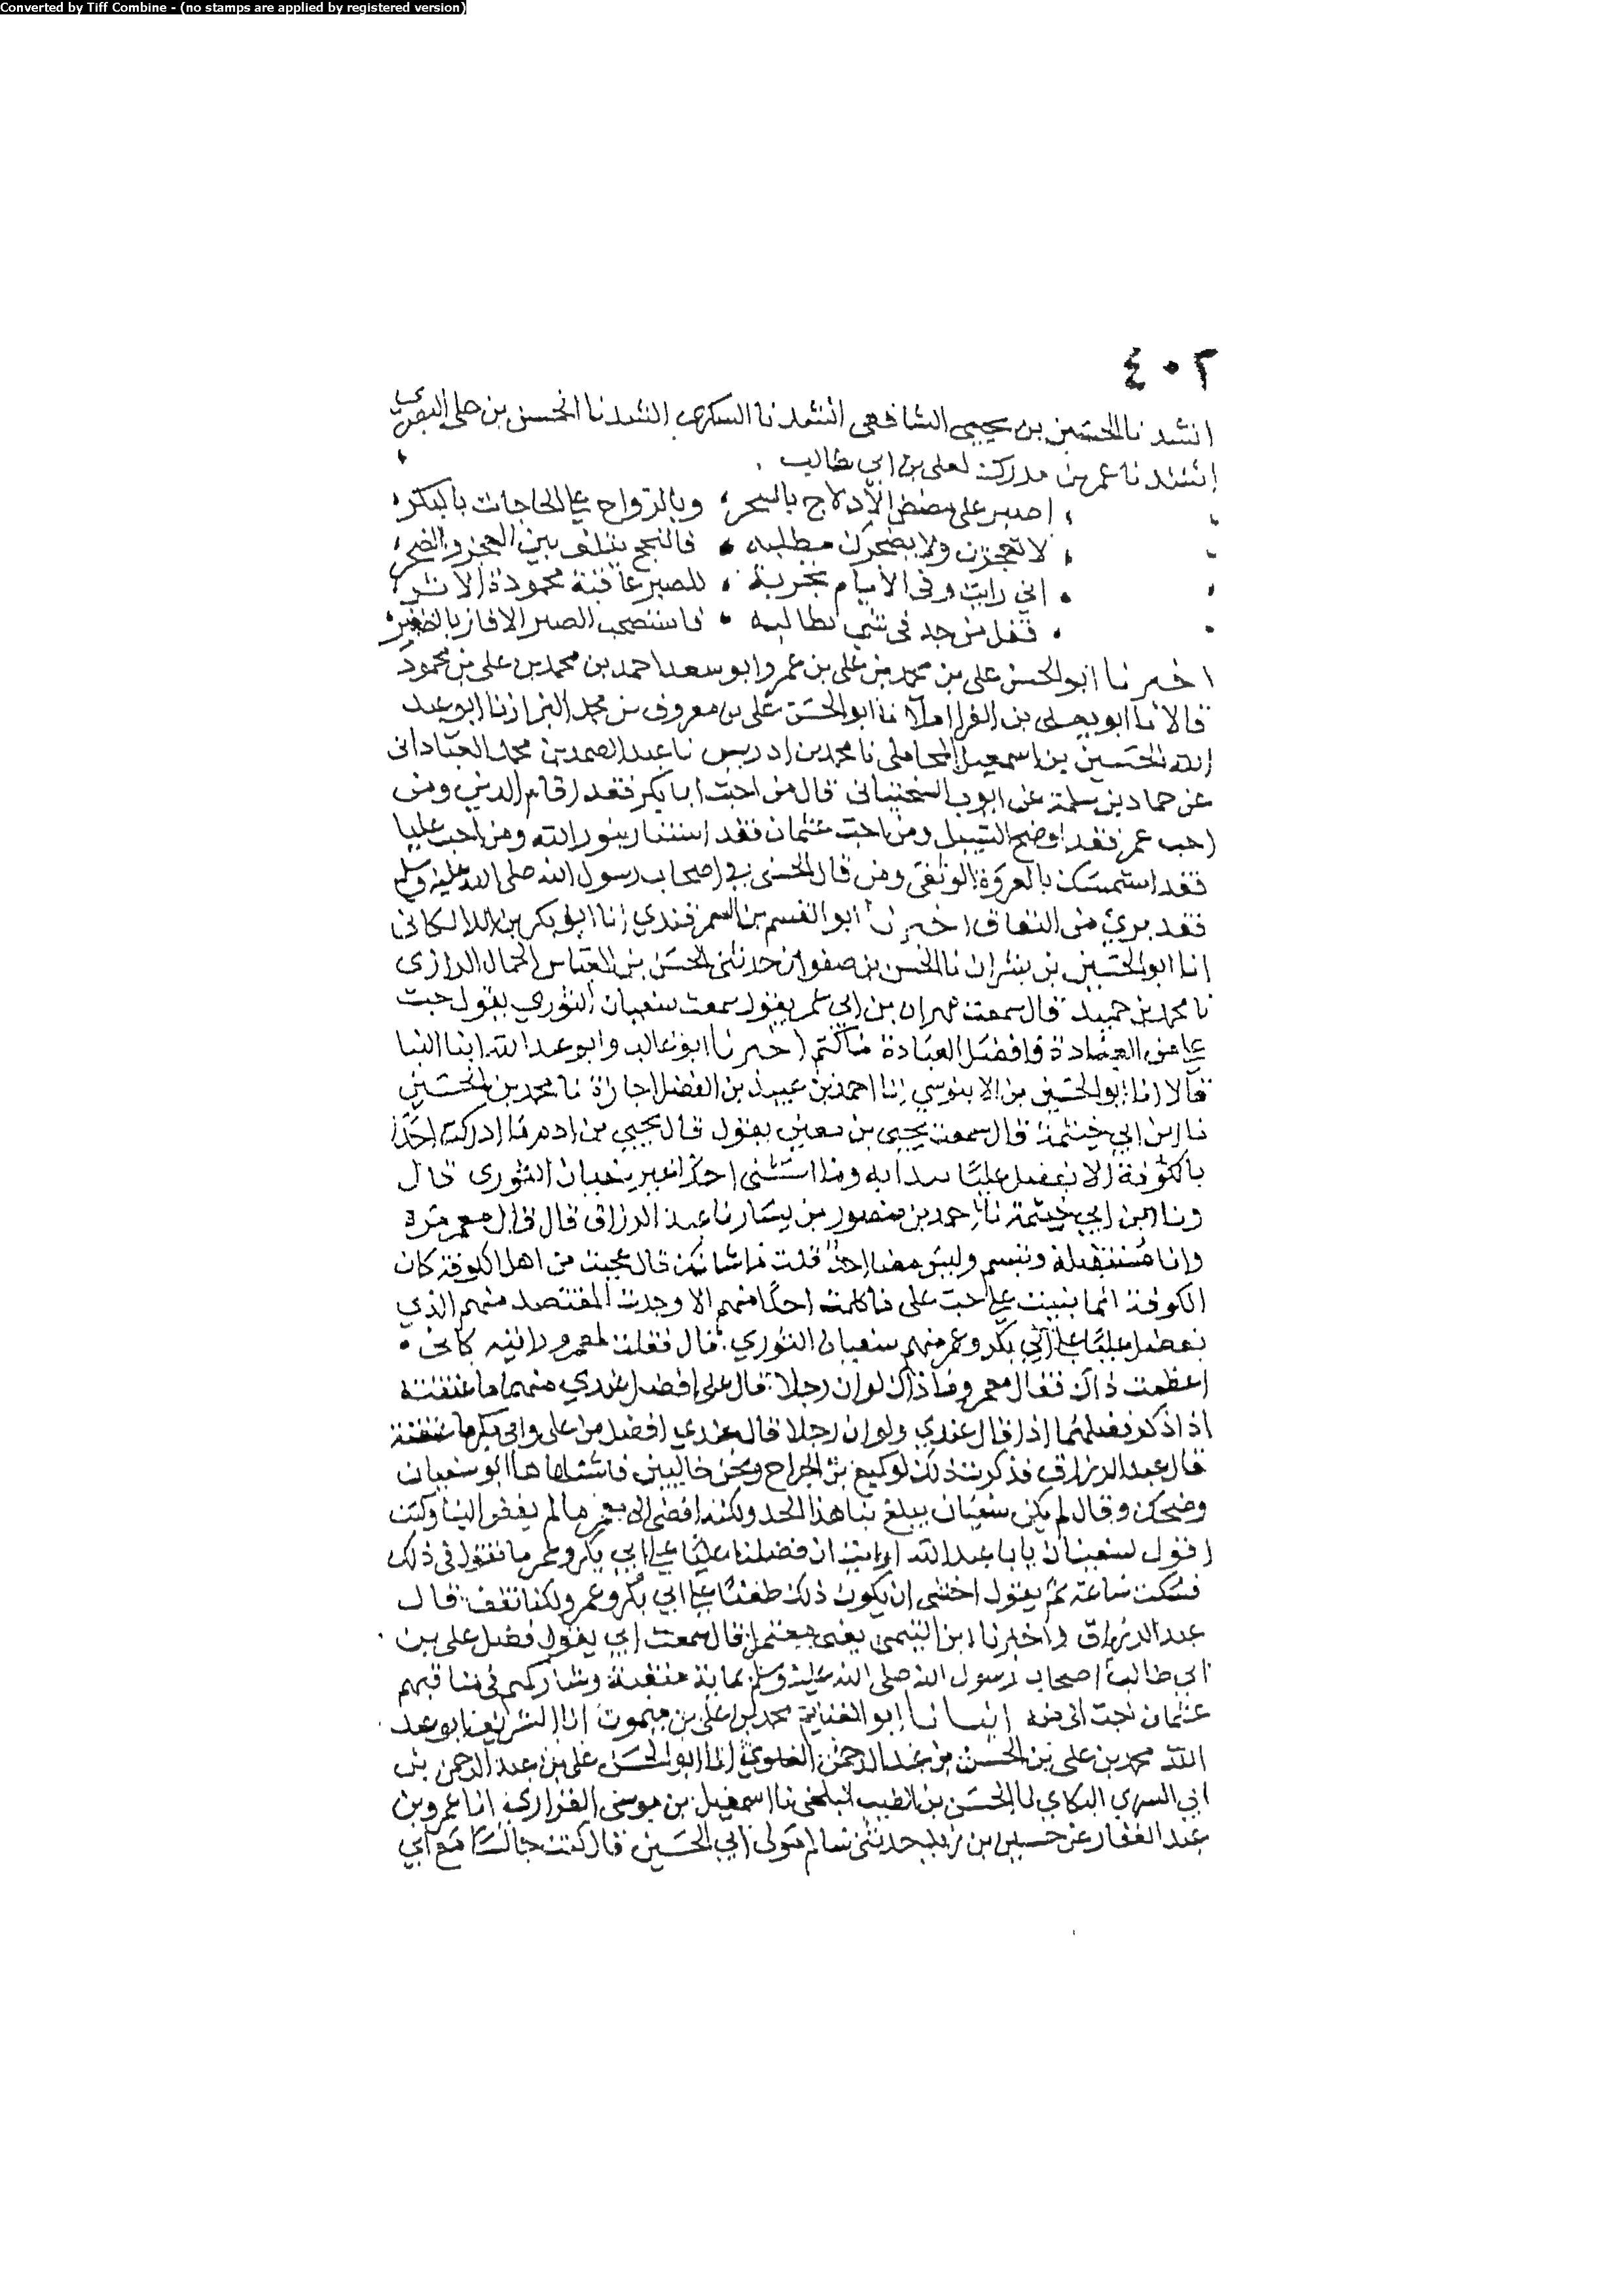 Converted by Tiff Combine - (no stamps are applied by registered version)
٤٠٢
انشدنا الحسين بن يحيى الشافعي انشدنا السكري انشدنا الحسن بن علي
انشدنا عمر بن مدرك لعلي بن ابي طالب
اصبر على مضض الادلاج بالسحر وبالرواح على الحاجات بالبكر
لا تعجزن ولا يضجرك مطلبه فالنجح يتلف بين العجز والضجر
اني رايت وفي الايام تجربة للصبر عاقبة محمودة الاثر
فقل من جد في شي يطالبه فاستصحب الصبر الا فاز بالظفر
اخبرنا ابو الحسن علي بن محمد بن علي بن عمر وابو سعد احمد بن محمد بن علي بن محمود
قالا نا ابو يعلى بن الفرا املا نا ابو الحسن علي بن معروف بن محمد البزاز نا ابو عبد
الله الحسين بن اسمعيل المحاملي نا محمد بن ادريس نا عبد الصمد بن محمد العباداني
عن حماد بن سلمة عن ايوب السختياني قال من احب ابا بكر فقد اقام الدين ومن
احب عمر فقد اوضح السبيل ومن احب عثمان فقد استنار بنور الله ومن احب عليا
فقد استمسك بالعروة الوثقى ومن قال الحسنى في اصحاب رسول الله صلى الله عليه وسلم
فقد بري من النفاق اخبرنا ابو القسم بن السمرقندي انا ابو بكر بن اللالكائي
انا ابو الحسين بن بشران نا الحسين بن صفوان حدثني الحسن بن العباس الحمال الرازي
نا محمد بن حميد قال سمعت مهران بن ابي عمر يقول سمعت سفيان الثوري يقول حب
علي من العبادة وافضل العبادة ما كتم اخبرنا ابو غالب وابو عبد الله ابنا البنا
قالا انا ابو الحسين بن الابنوسي انا احمد بن عبيد بن الفضل اجازة نا محمد بن الحسين
نا ابن ابي خيثمة قال سمعت يحيى بن معين يقول قال يحيى بن ادم ما ادركت احدا
بالكوفة الا يفضل عليا يبدا به وما استثنى احدا غير سفيان الثوري قال
ونا ابن ابي خيثمة نا احمد بن منصور بن يسار نا عبد الرزاق قال قال معمر مرة
وانا مستقبله وتبسم وليس معنا احد قلت ما شانك قال عجبت من اهل الكوفة كان
الكوفة انما بنيت على حب علي ما كلمت احدا منهم الا وجدت المقتصد منهم الذي
يفضل عليا على ابي بكر وعمر منهم سفيان الثوري قال فقلت لمعمر ورايته كاني
اعظمت ذاك فقال معمر وما ذاك لو ان رجلا قال علي افضل عندي منهما ما عنفته
اذا ذكر فضلهما اذا قال عندي ولو ان رجلا قال عمر عندي افضل من علي وابي بكر ما عنفته
قال عبد الرزاق فذكرت ذلك لوكيع بن الجراح ونحن خاليين فاشتهاها ابو سفيان
وضحك وقال لم يكن سفيان يبلغ بنا هذا الحد ولكنه افضى الى معمر ما لم يفض الينا وكنت
اقول لسفيان يابا عبد الله ارايت ان فضلنا عليا على ابي بكر وعمر ما تقول في ذلك
فسكت ساعة ثم يقول اخشى ان يكون ذلك طعنا على ابي بكر وعمر ولكنا نقف قال
عبد الرزاق واخبرنا ابن التيمي يعني معتمر قال سمعت ابي يقول فضل علي بن
ابي طالب اصحاب رسول الله صلى الله عليه وسلم بماية منقبة وشاركهم في مناقبهم
عثمان احب الي منه انبانا ابو الغنايم محمد بن علي بن ميمون انا الشريف ابو عبد
الله محمد بن علي بن الحسن بن عبد الرحمن العلوي انا ابو الحسن علي بن عبد الرحمن بن
ابي السري البكاي نا الحسن بن الطيب البلخي نا اسمعيل بن موسى الفزاري انا عمرو بن
عبد الغفار عن حسين بن زيد حدثني سالم مولى ابي الحسين قال كنت جالسا مع ابي